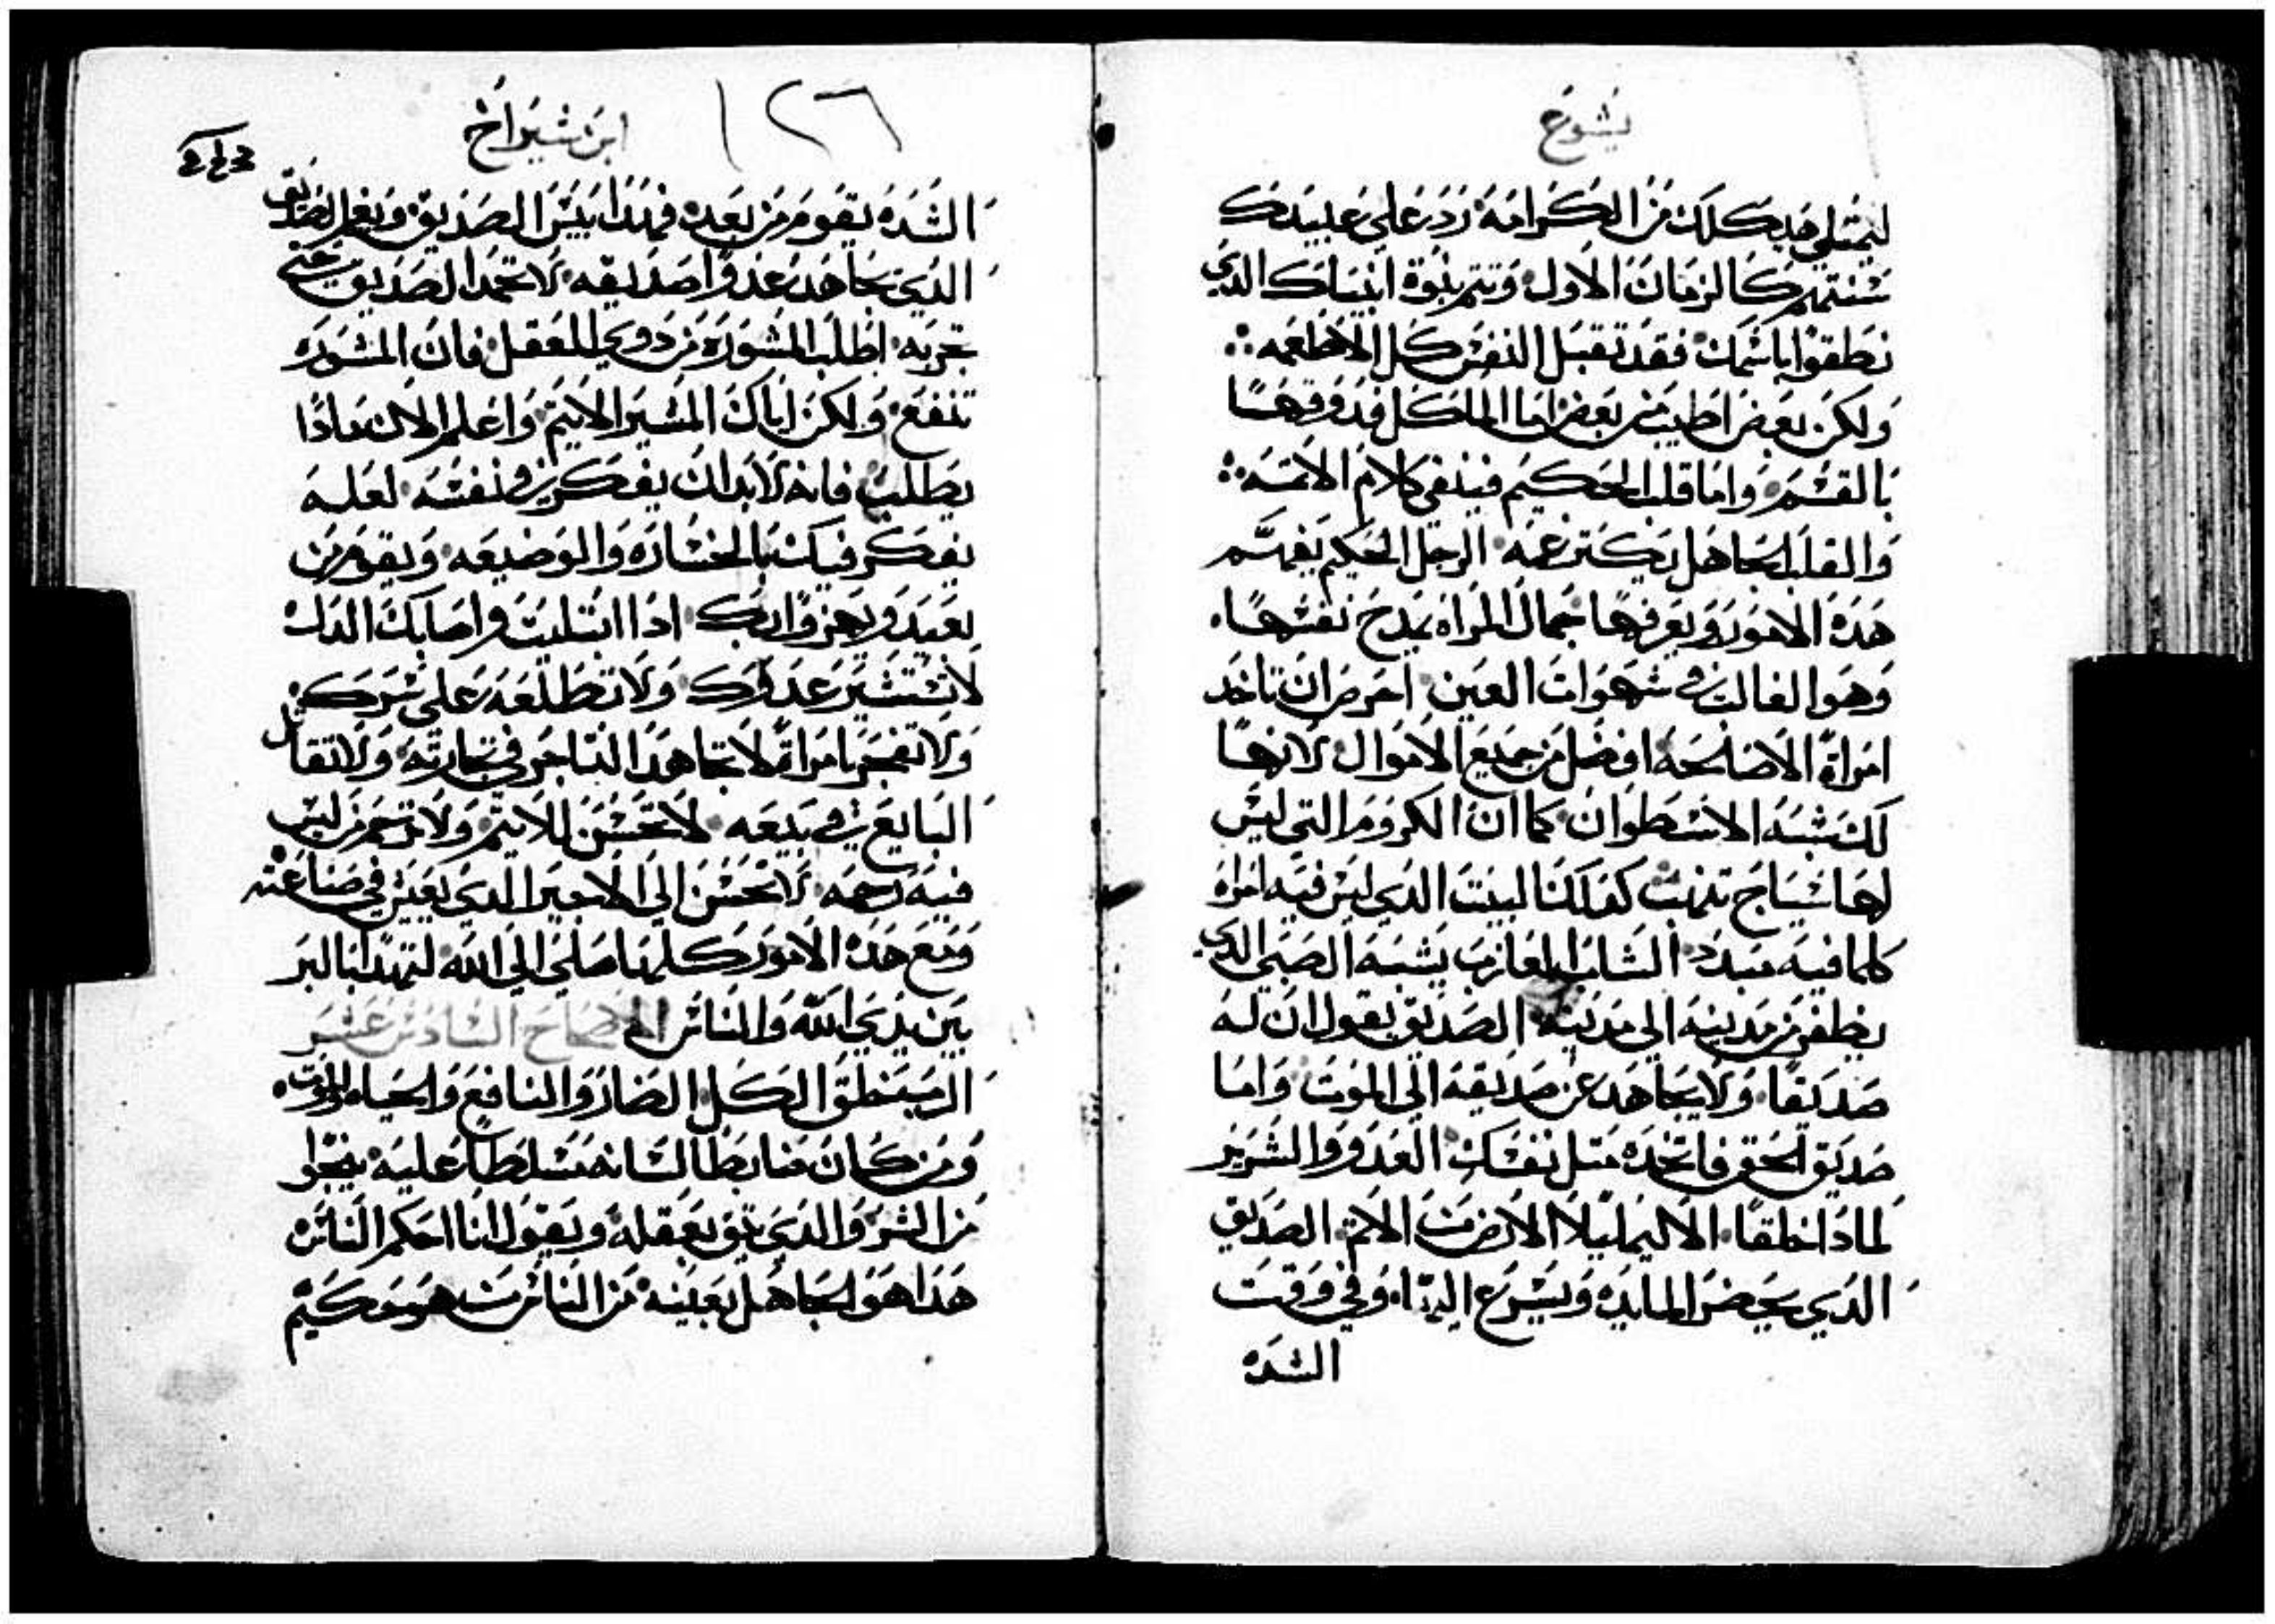 يشوع
ليمتلي هيكلك من الكرامه زدد علي عبيدك
شنتهم كالزمان الاول وتتم نبوة انبياك الدي
نطقوا باشمك فقد تقبل النفش كل الاطعمه
ولكن بعض اطيب من بعض اما الماكل فدوقها
بالقشم واما قلب الحكيم فينفي كلام الاتمه
والقلب الجاهل يكتر غمه الرجل الحكيم يفهم
هده الامور ويعرفها جمال المراه يمدح نفشها
وهو الغالب في شهوات العين احرص ان تاخد
امراة الاصلحه افضل من جميع الاموال لانها
لك شبه الاشطوان كما ان الكروم التي ليش
لها شياج تنهب كدلك البيت الدي ليش فيه امراه
كلما فيه مبدد الشاب العازب يشبه الصبي الدي
يطفر من مدينه الي مدينه الصديق يقول ان له
صديقا ولا يجاهد عن صديقه الي الموت واما
صديق الحق فاتخده متل نفشك العدو والشرير
لمادا خلقا الا ليمليلا الارض من الاتم الصديق
الدي يحضر المايده ويشرع اليها وفي وقت
الشده
ابن شيراخ ١٢٦
الشده يقوم من بعد فهدا بيش الصديق ونعم الصديق
الدي يجاهد عدوا صديقه لا تحمد الصديق حتي
تجربه اطلب المشوره من دوي العقل فان المشوره
تنفع ولكن اياك المشير الاتيم واعلم الان مادا
يطلب فانه لابد ان يفكر في نفشه لعله
يفكر فيك بالخشاره والوضيعه ويقوم من
بعيد ويهزوا بك ادا ابتليت واصابك الدل
لا تشتشير عدوك ولا تطلعه علي شرك
ولا تفجر بامراة لا تجاهد التاجر في تجارته ولا تقاتل
البايع في بيعه لا تحشن للاتيم ولا ترحم من ليش
فيه رحمه لا تحشن الي الاجير الدي يعيش في صناعته
ومع هده الامور كلها صلي الي الله لتهدا بالبر
بين يدي الله والناش الاصحاح الشادش عشر
الرب خلق الكل الضار والنافع والحياه والموت
ومن كان ضابطا لشانه متشلطا عليه ينجوا
من الشر والدي يتق بعقله ويقول انا احكم الناش
هدا هو الجاهل بعينه من الناش من هو حكيم